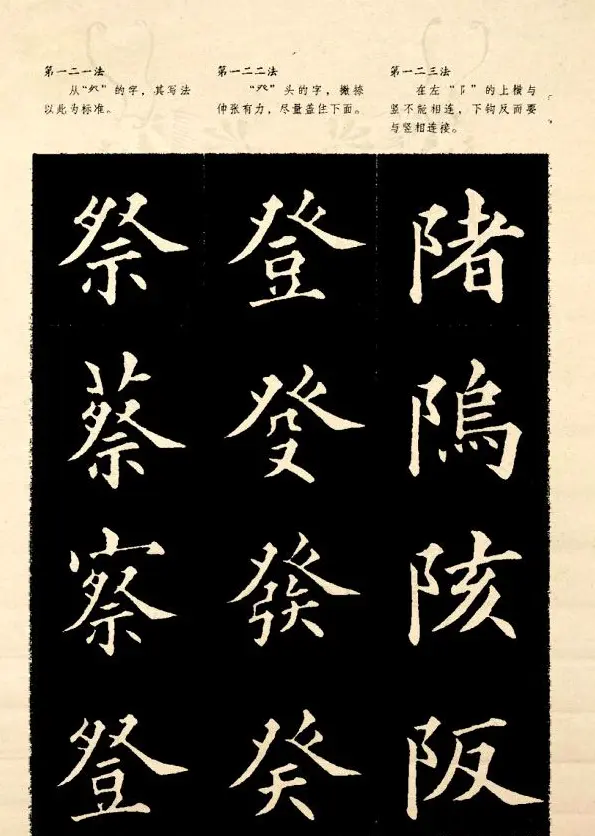 第一二一法
从“”的字，其写法
以此为标准。
第一二二法
“癶”头的字，撇捺
伸张有力，尽量盖住下面。
第一二三法
在左“阝”的上横与
竖不能相连，下钩反而要
与竖相连接。
祭
蔡
察
豋
登
癹
發
癸
陼
隖
陔
阪